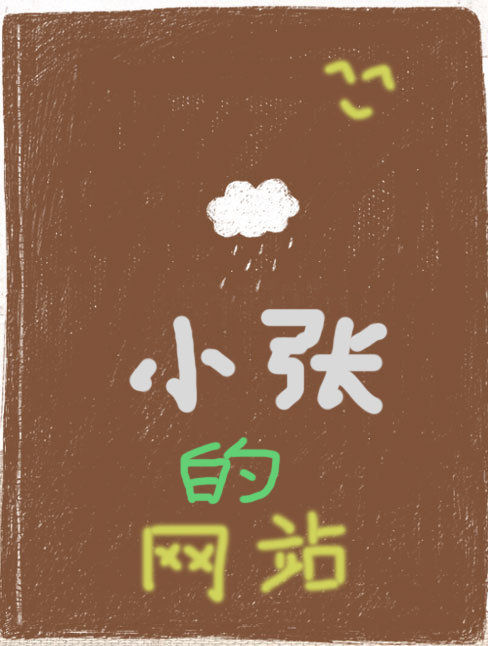 小张
的
网站